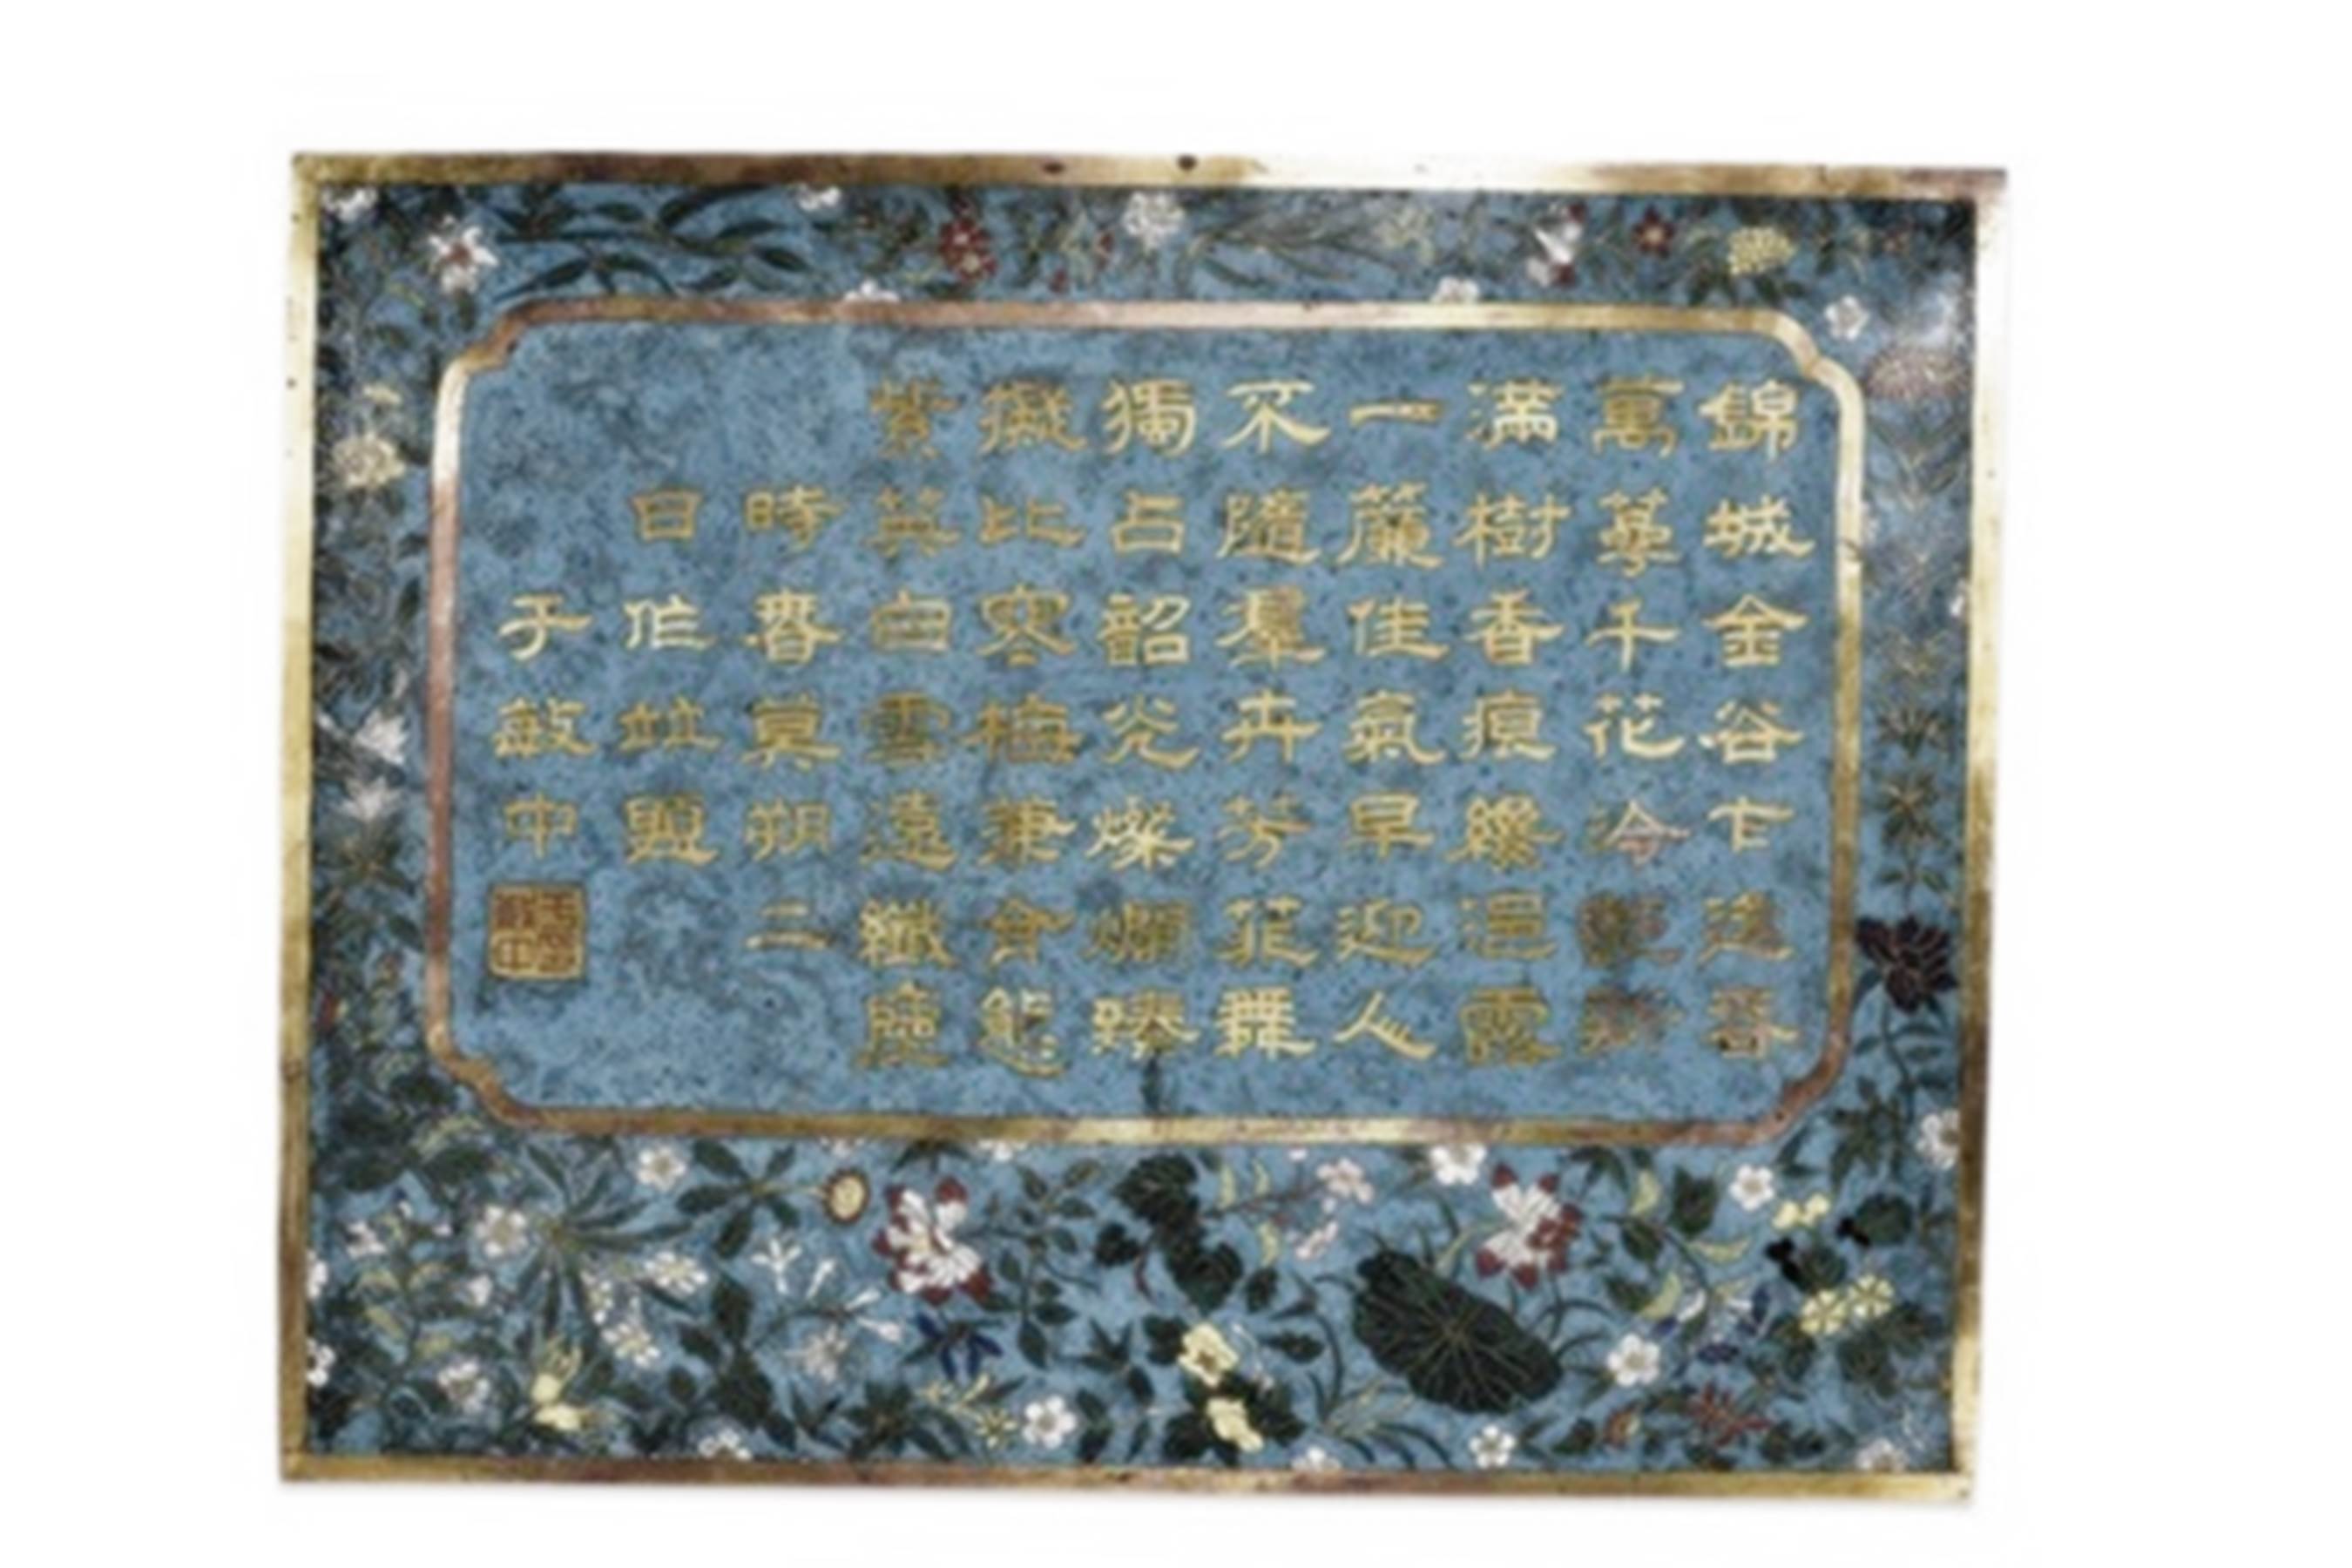 錦城金谷乍逢春
萬萼千花冷艷新
滿樹香痕纔浥露
一簾佳氣早迎人
不隨羣卉芳菲舞
獨占韶光燦爛臻
擬比寒梅兼會態
紫英白雪遠纖塵
時暮萁朔二
日作竝題
于敏中